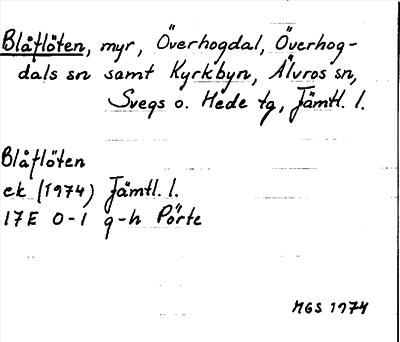 Blåflöten, myr, Överhogdal, Överhog-
dals sn samt Kyrkbyn, Älvros sn,
Svegs o. Hede tg, Jämtl. l.
Blåflöten
ek (1974) Jämtl. l.
17E 0-1 g-h Pörte
MGS 1974